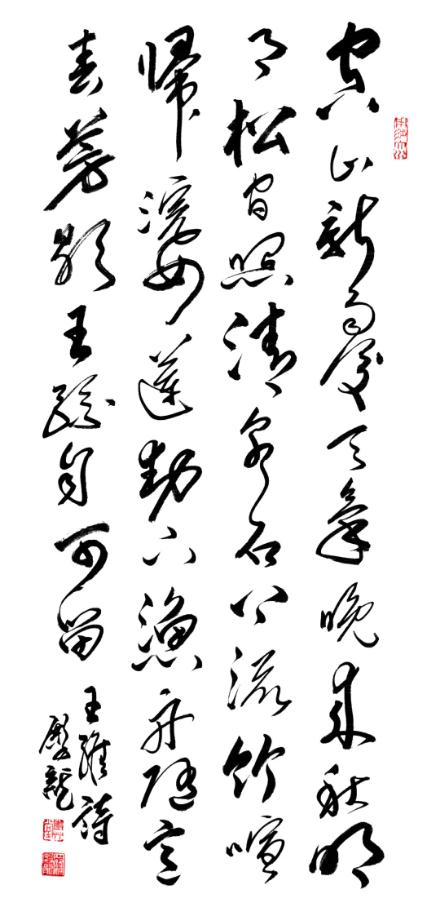 空山新雨後天氣晚來秋明
月松間照清泉石上流竹喧
歸浣女蓮動下漁舟隨意
春芳歇王孫自可留
王維詩
龍